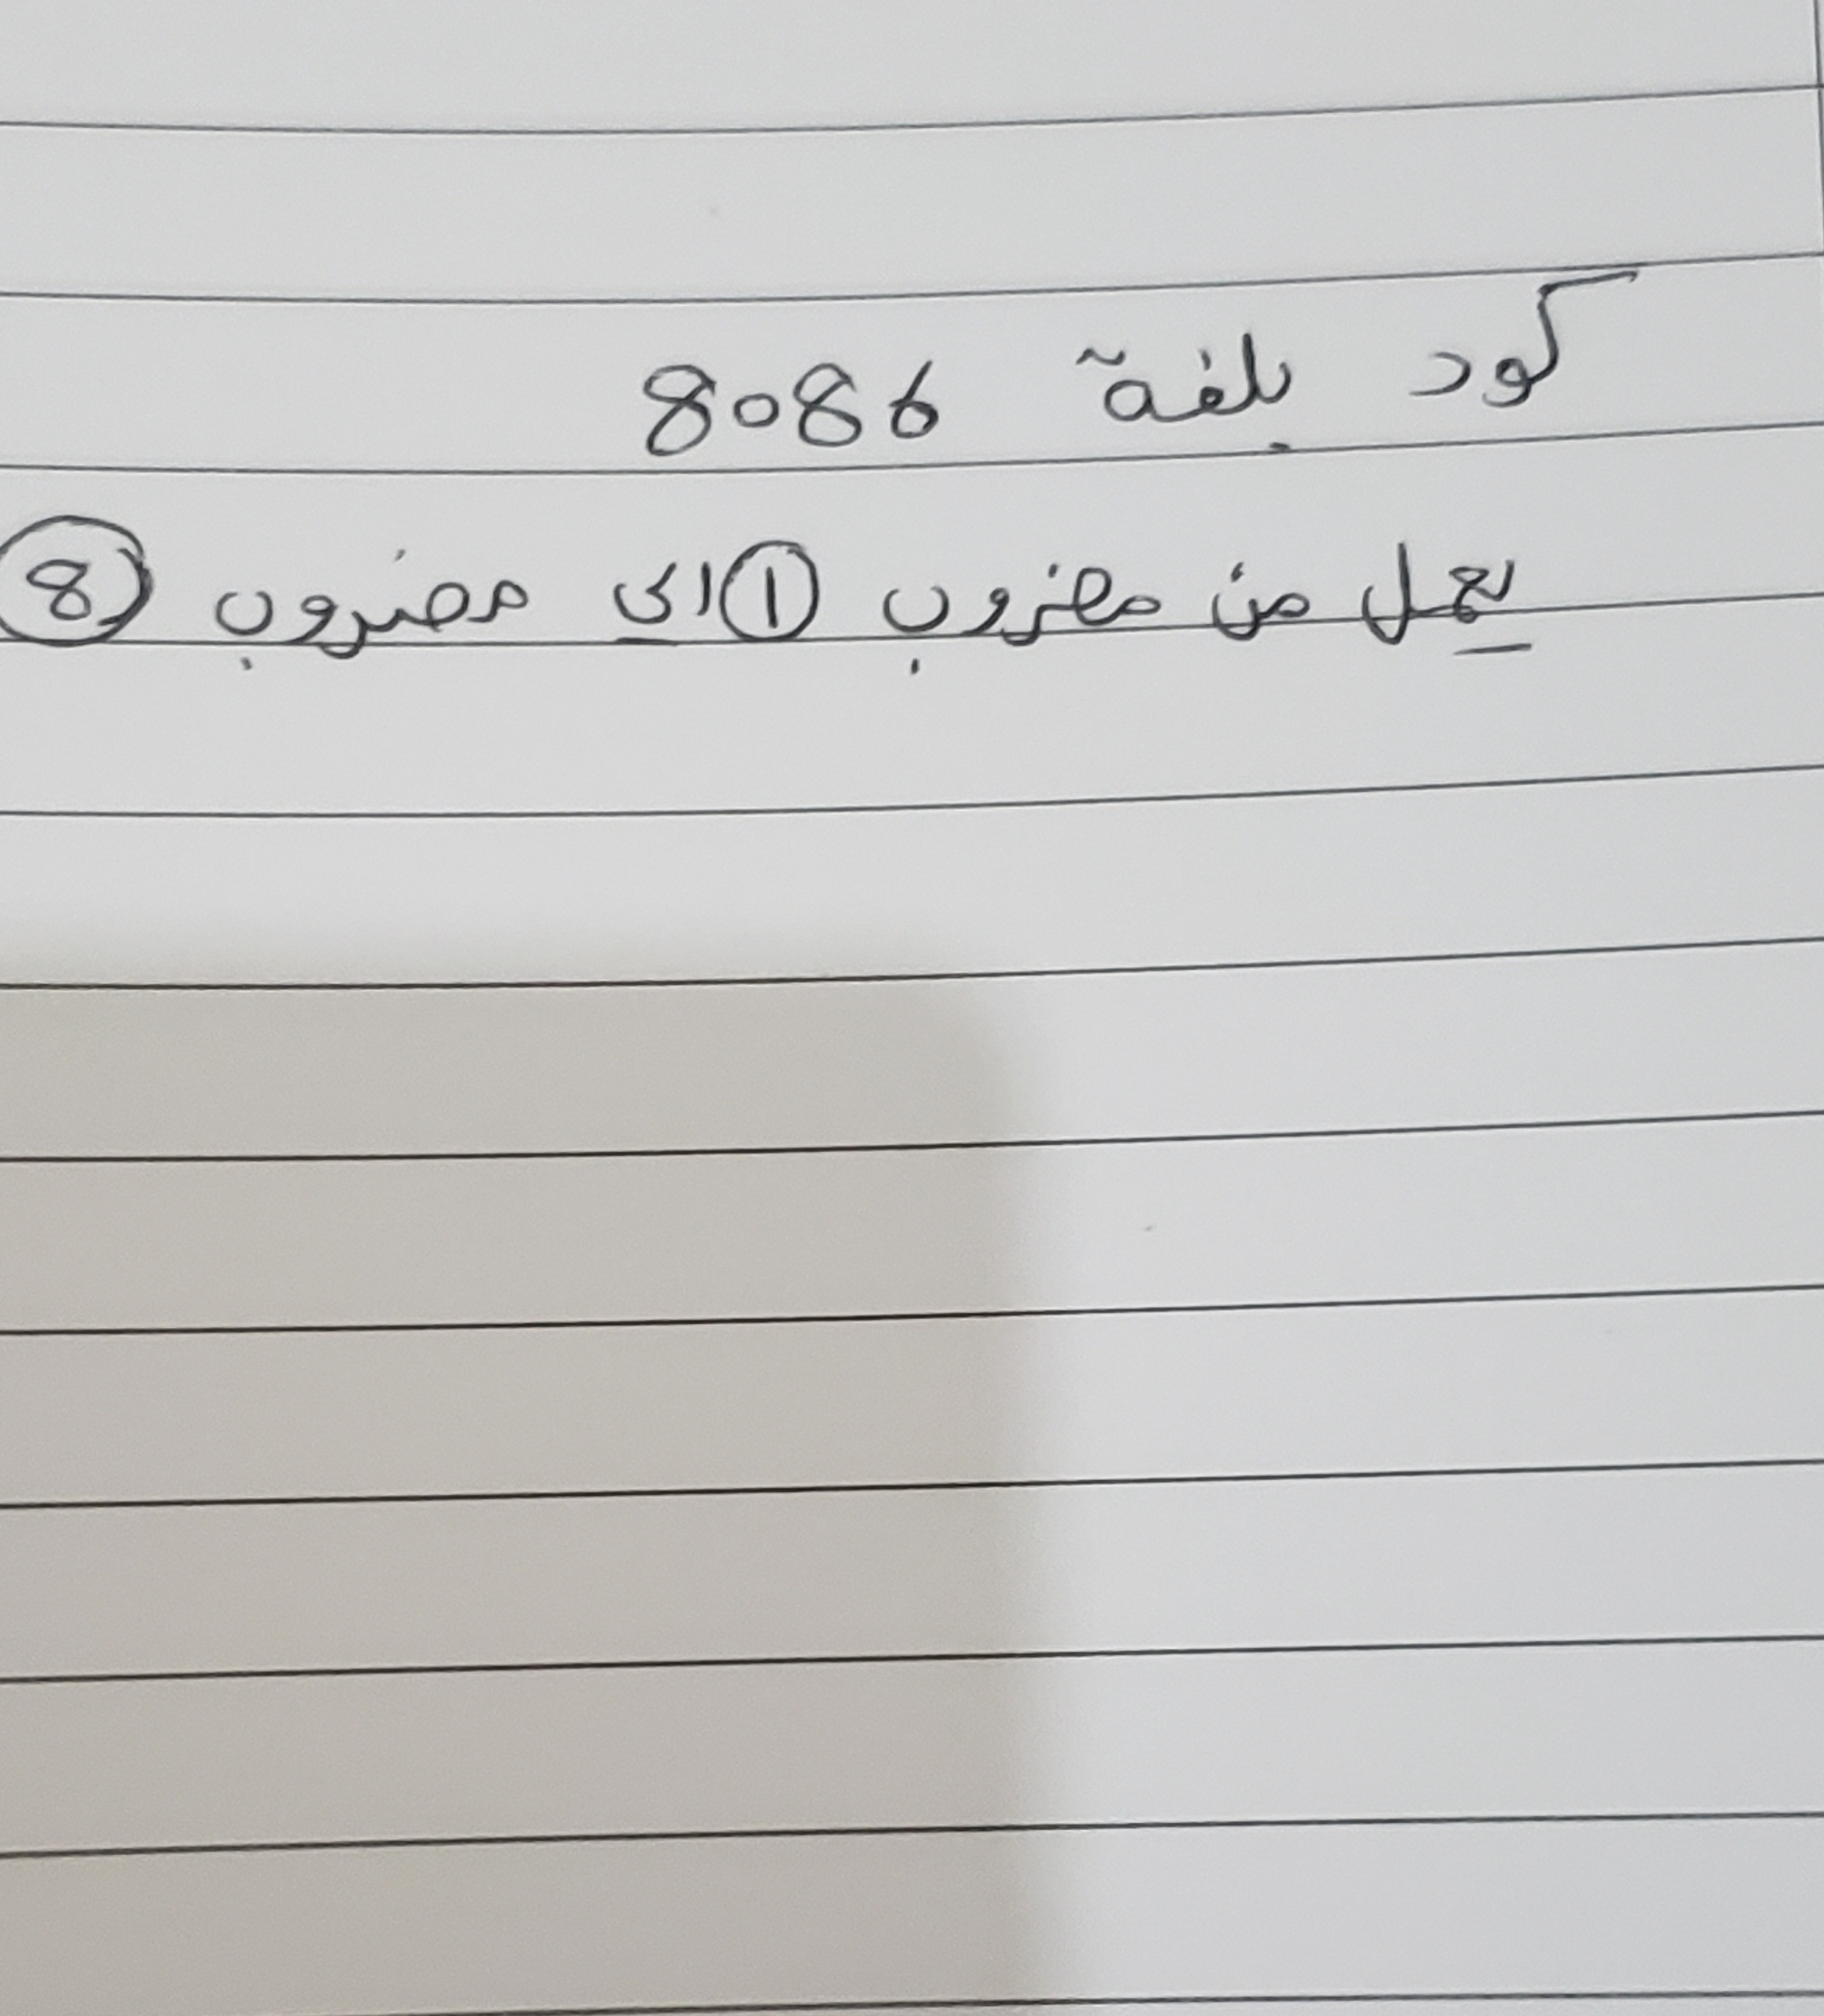 كود بلغة 8086
يعمل من مضروب 1 الى مضروب 8